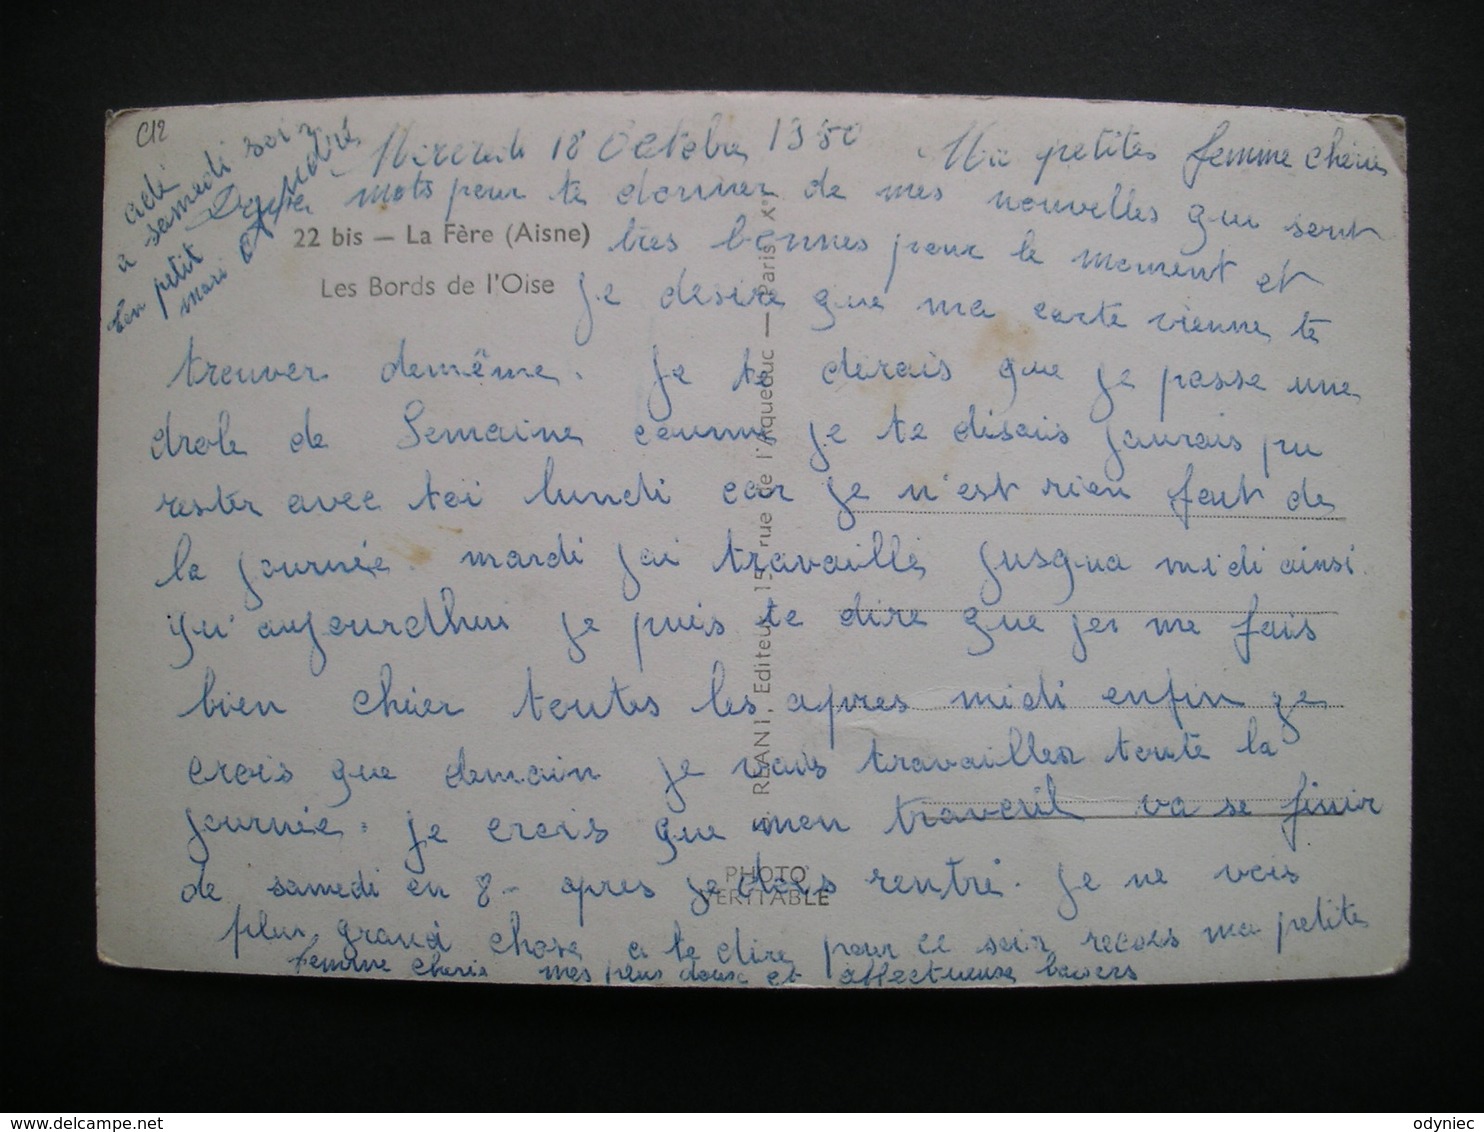 C12
Mercredi 18 Octobre 1950
Ma petites femme cheries
mots pour te donner de mes nouvelles qui sont
22 bis — La Fère (Aisne)
très bonnes pour le moment et
Les Bords de l'Oise
je desire que ma carte vienne te
trouver demême. Je te dirais que je passe une
drole de Semaine comme je te disais jaurais pu
rester avec toi lundi car je n'est rien fout de
la journée. mardi jai travaillé jusqua midi ainsi
qu'aujourdhui je puis te dire que je me fais
bien chier toutes les apres midi enfin je
crois que demain je vais travailler toute la
journée. je crois que mon traveril va se finir
de samedi en 8 - apres je serais rentré. Je ne vois
plus grand chose a te dire pour ce soir recois ma petite
femme cherie mes plus doux et affectueuse baisers
à samedi soir
Ton petit
mari André
RÉANI, Editeur, 15, rue de l'Aqueduc — Paris X°
PHOTO
VERITABLE
odyniec